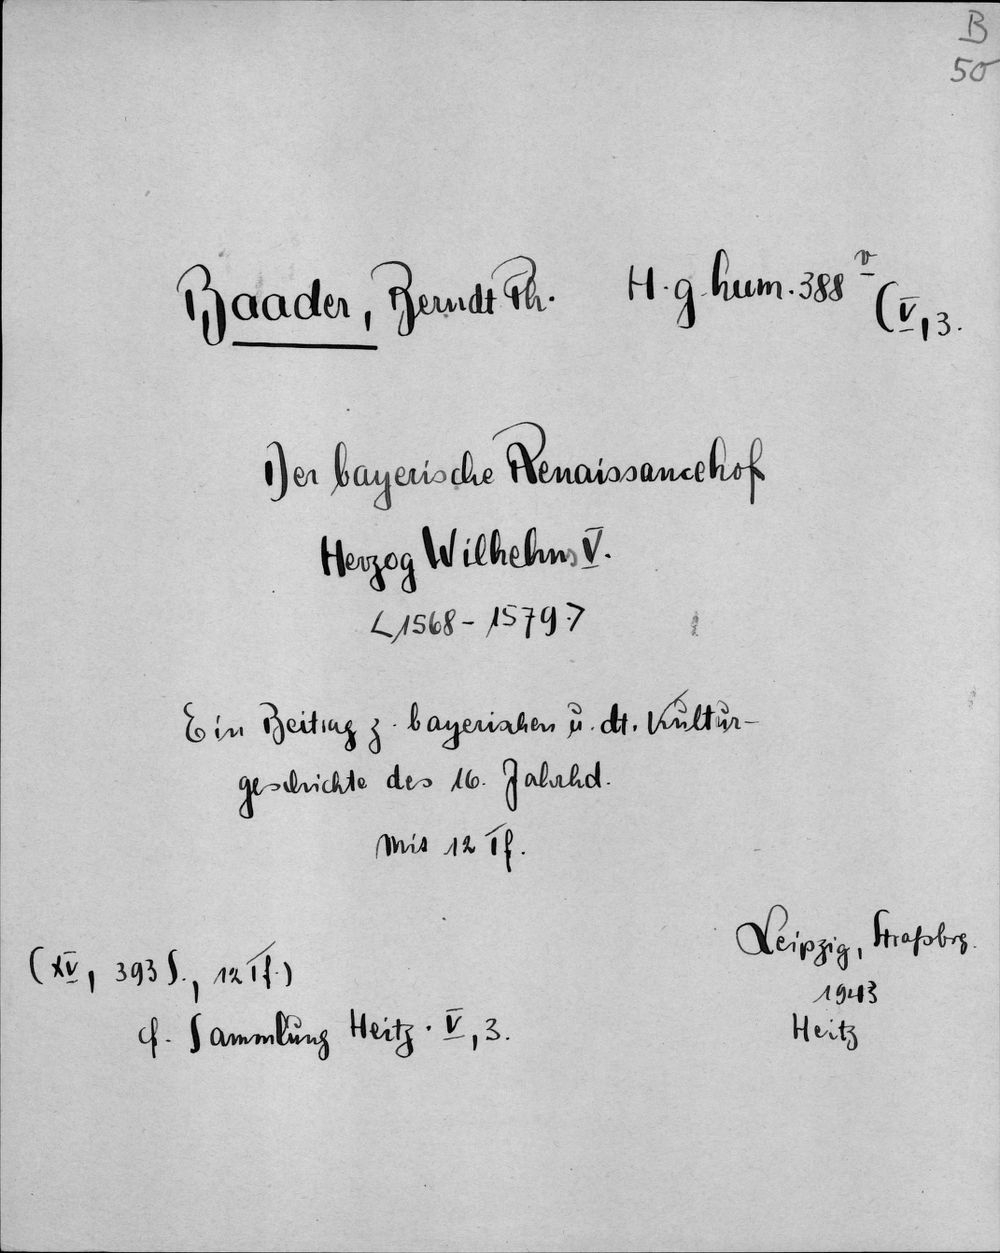 B
50
Baader, Berndt Ph. H. g. hum. 388 v (V, 3.
Der bayerische Renaissancehof
Herzog Wilhelms V.
<1568 - 1579.>
Ein Beitrag z. bayerischen u. dt. Kultur-
geschichte des 16. Jahrhd.
Mit 12 Tf.
(XV, 393 S., 12 Tf.)
cf. Sammlung Heitz. V, 3.
Leipzig, Straßbrg.
1943
Heitz